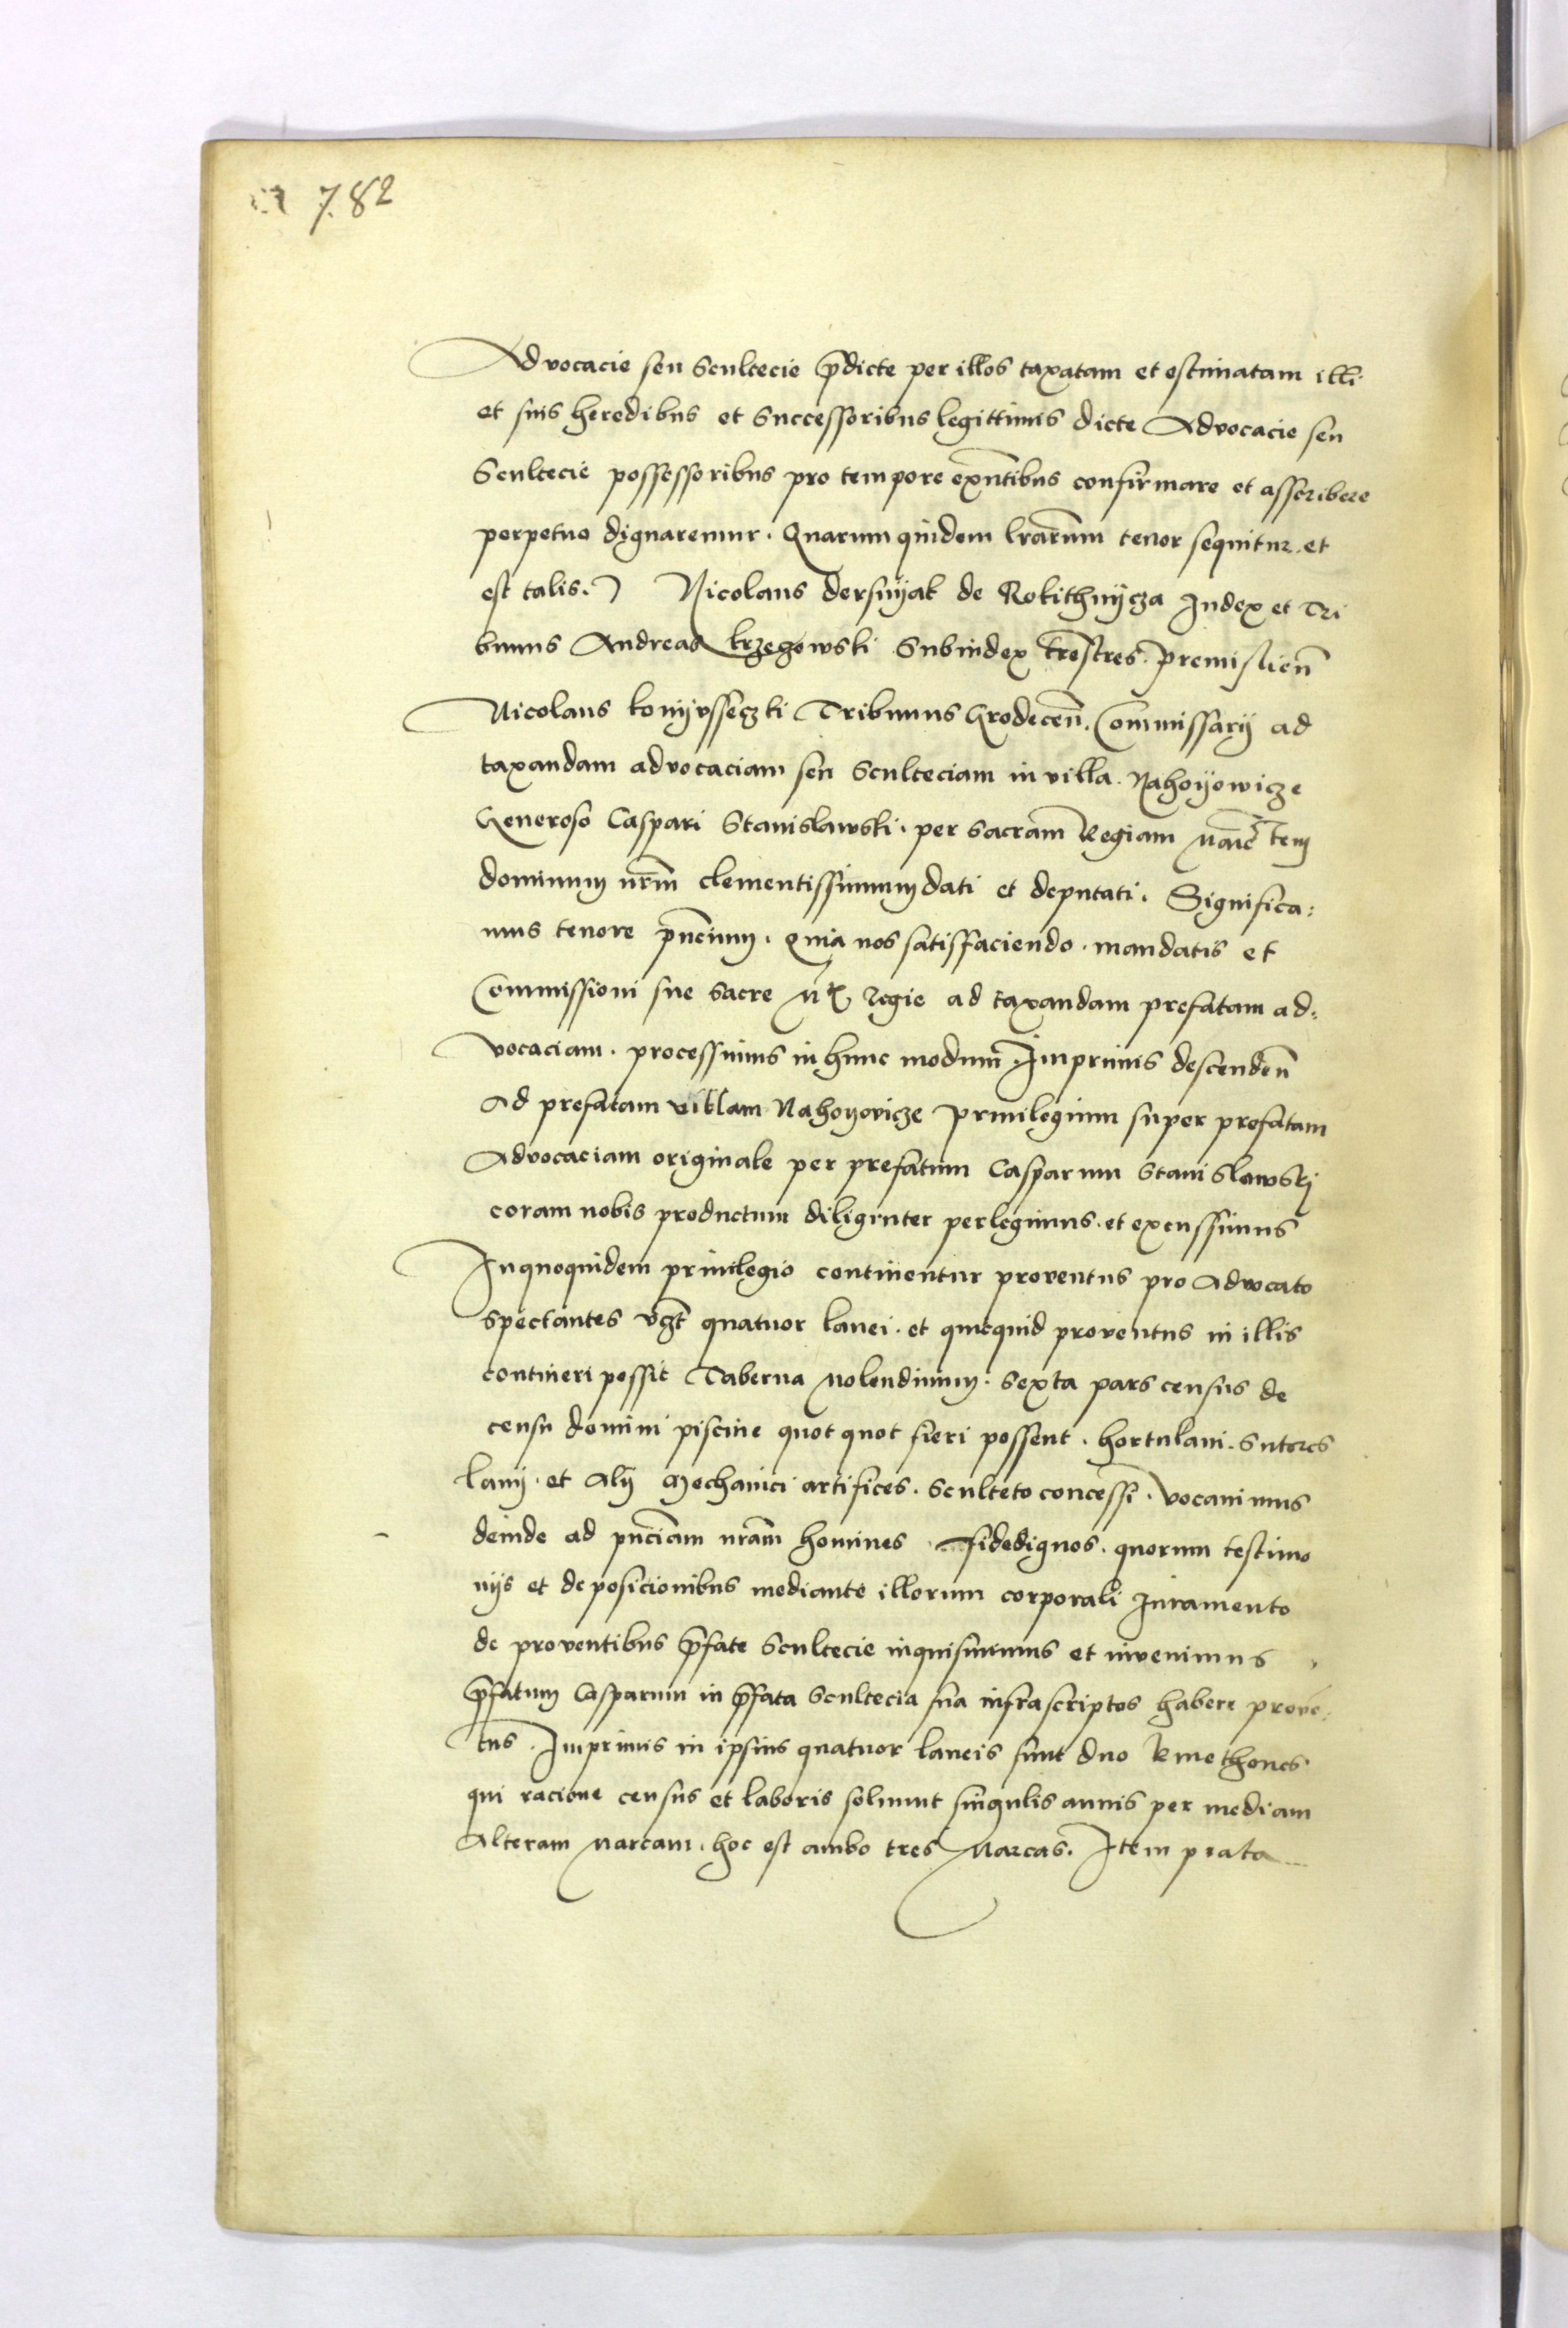 782
Advocacie seu Scultecie p̄dicte per illos taxatam et estimatam illi
et suis heredibus et Successoribus legittimis dicte Advocacie seu
Scultecie possessoribus pro tempore exn̄tibus confirmare et asscribere
perpetuo dignaremur. Quarum quidem lrarum tenor sequitur et
est talis. Nicolaus dersnyak de Rokithnycza Iudex et Tri
bunus Andreas krzeczowski Subiudex trēstres. Premislien̄
Nicolaus konyvsseczki Tribunus Grodecen̄. Commissarij ad
taxandam advocaciam seu Sculteciam in villa. Nahoyowicze
Generoso Caspari Stanislawski. per Sacram Regiam Maiestatem
dominum nr̄m clementissimum dati et deputati. Significa:
mus tenore pn̄cium. quia nos satisfaciendo. mandatis et
Commissioni sue Sacre Mtis Regie ad taxandam prefatam ad,
vocaciam. processimus in hunc modum. Imprimis descenden̄
Ad prefatam villam Nahoyovicze Privilegium super prefatam
Advocaciam originale per prefatum Casparum Stanislawskj
coram nobis productum diligenter perlegimus. et excussimus
In quoquidem privilegio continentur proventus pro Advocato
spectantes včt quatuor lanei. et quicquid proventus in illis
contineri possit Taberna Molendinum. Sexta pars census de
censu domini piscine quot quot fieri possent. hortulani. Sutores
lanij. et Alij Mechanici artifices. Sculteto concessi. Vocavimus
deinde ad pn̄ciam nrām homines fidedignos. quorum testimo
nijs et deposicionibus mediante illorum corporali Iuramento
de proventibus p̄fate Scultecie inquisivimus et invenimus
p̄fatum Casparum in p̄fata Scultecia sua infrascriptos habere prove,
tus. Imprimis in ipsius quatuor laneis sunt duo kmethones
qui racione census et laboris solvunt singulis annis per mediam
Alteram Marcam. hoc est ambo tres Marcas. Item prata